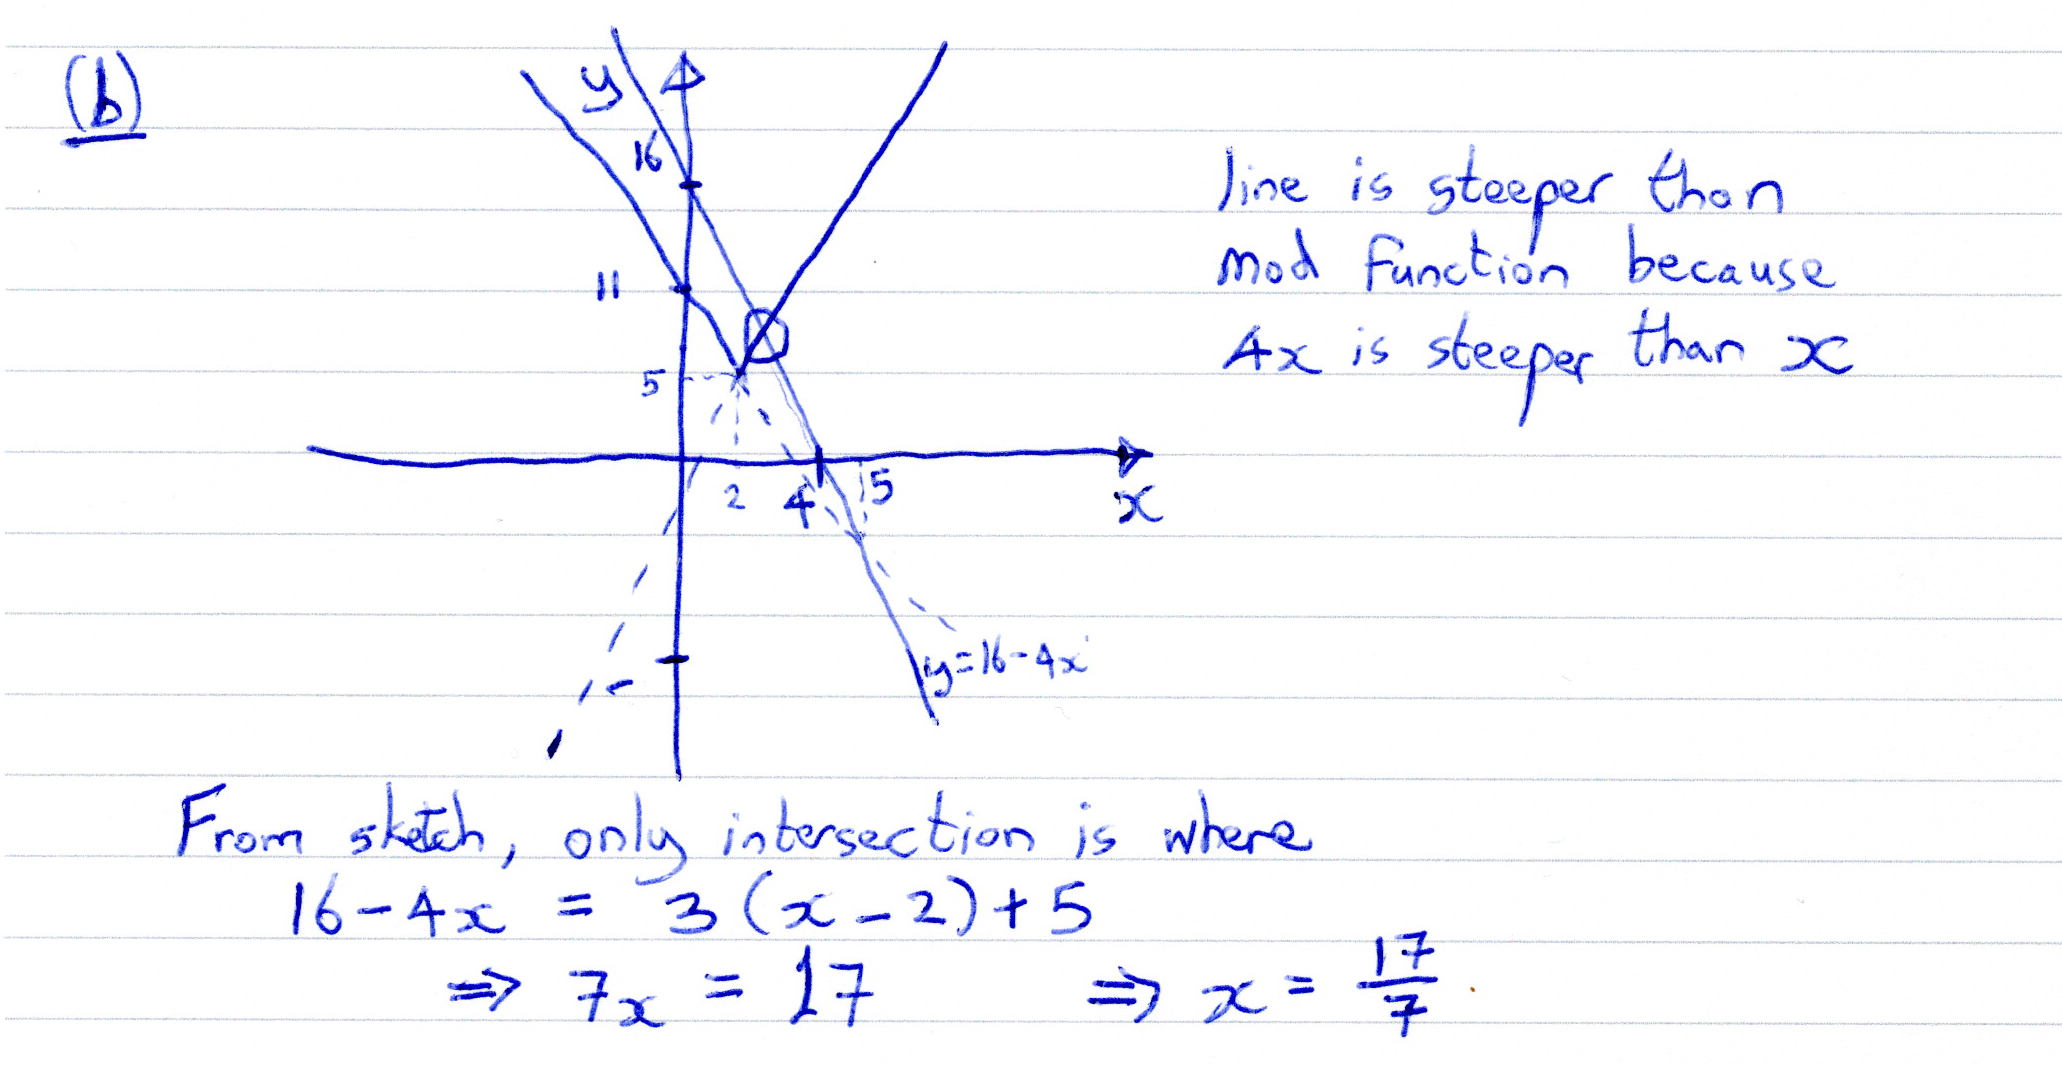 (b)
y
16
11
5
2 4 5
x
y=16-4x
line is steeper than
mod function because
4x is steeper than x
From sketch, only intersection is where
16-4x = 3(x-2)+5
⇒ 7x = 17 ⇒ x = 17/7.